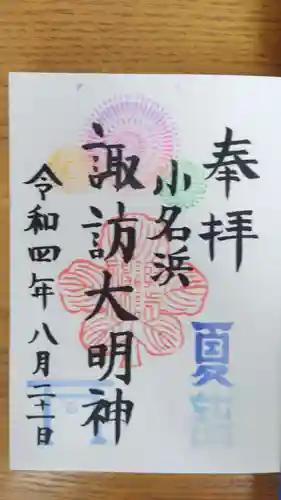 奉拝
小名浜
諏訪大明神
令和四年八月二十一日
夏詣